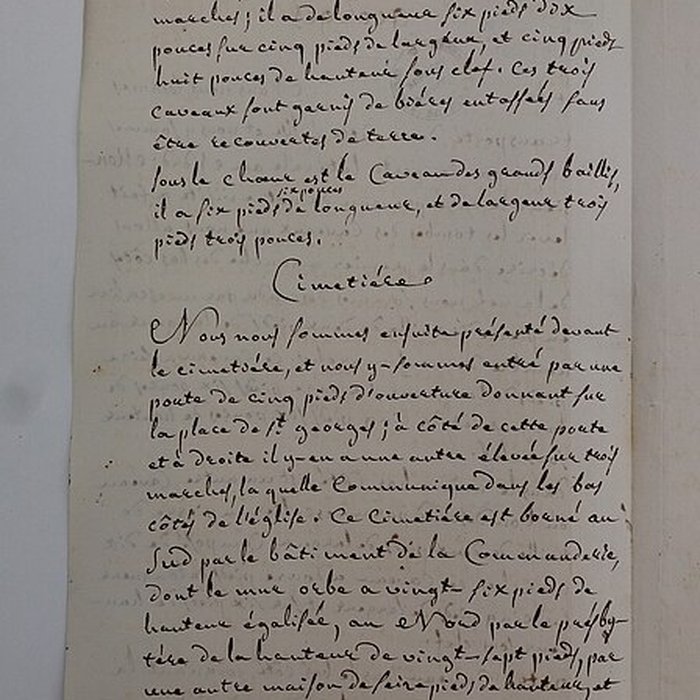 marches; il a de longueur six pieds dix
pouces sur cinq pieds de largeur, et cinq pieds
huit pouces de hauteur sous clef. Ces trois
caveaux sont garnis de bières entassées sans
être recouvertes de terre.
sous le chœur est le Caveau des grands baillis,
six pouces
il a six pieds de longueur, et de largeur trois
pieds trois pouces.
Cimetiére
Nous nous sommes ensuite présenté devant
le cimetiére, et nous y-sommes entré par une
porte de cinq pieds d'ouverture donnant sur
la place de St. georges; à côté de cette porte
et à droite il y-en a une autre élevée sur trois
marches, la quelle Communique dans les bas
côtés de l'église. Ce Cimetiére est borné au
Sud par le bâtiment de la Commanderie,
dont le mur orbe a vingt-six pieds de
hauteur égalisée, au Nord par le présby-
tére de la hauteur de vingt-sept pieds, par
une autre maison de seize pieds de hauteur, et